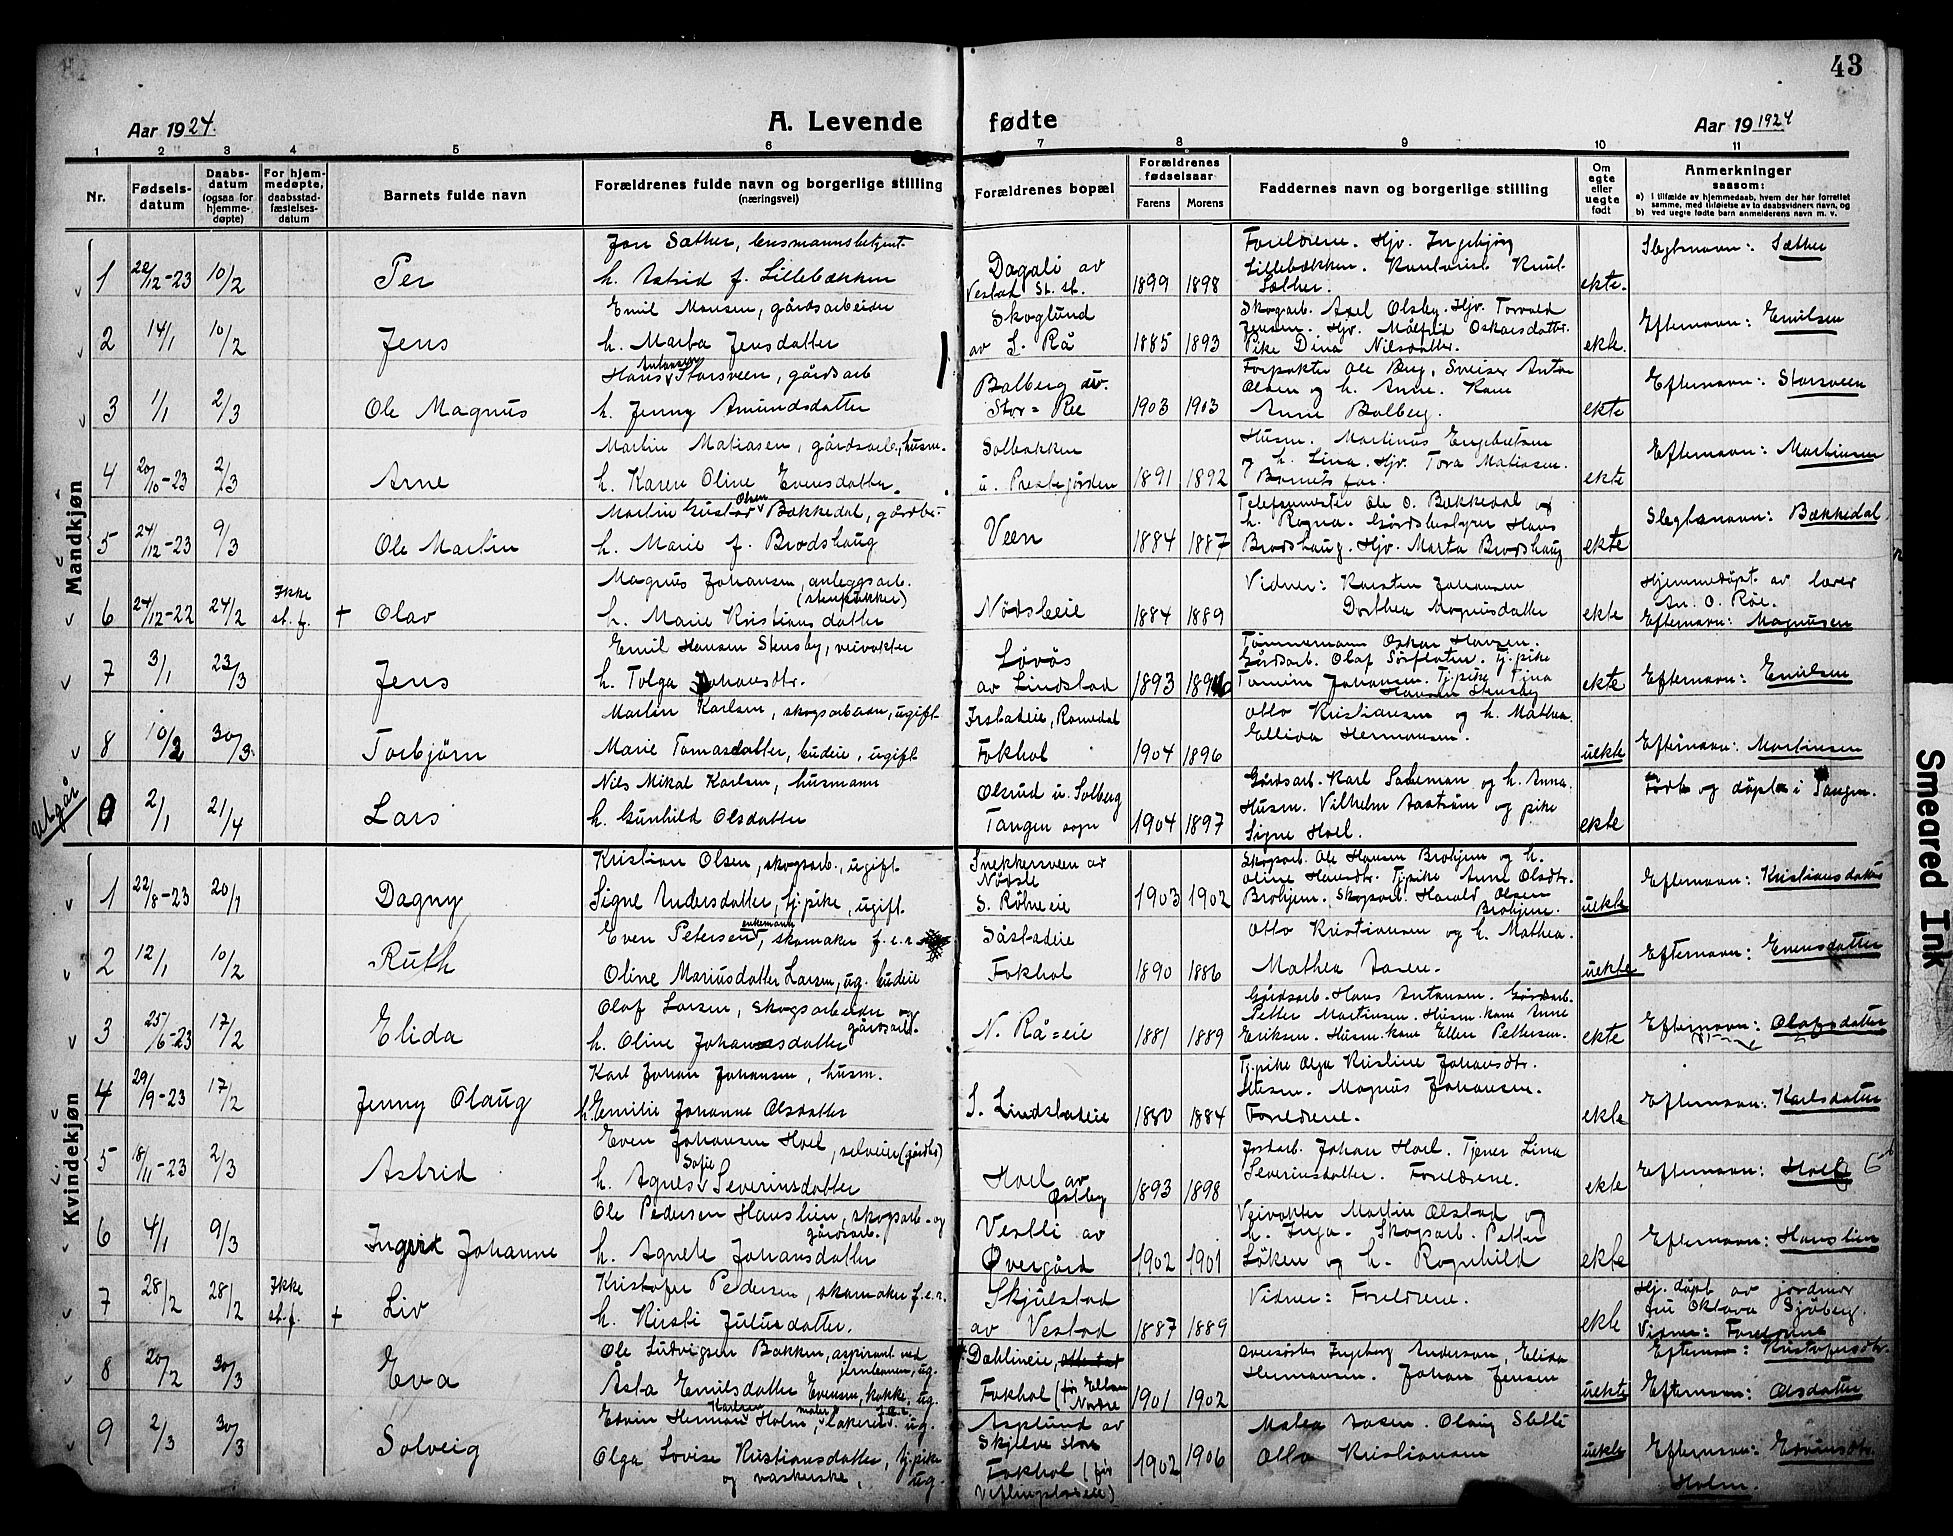 43
Aar 1924.
A. Levende
fødte
Aar 19 1924
1 2 3 4 5 6 7 8 9 10 11
Nr.
Fødselsdatum
Daabsdatum (ogsaa for hjemmedøpte)
For hjemmedøpte, daabsstadfæstelsesdatum
Barnets fulde navn
Forældrenes fulde navn og borgerlige stilling
(næringsvei)
Forældrenes bopæl
Forældrenes fødselsaar
Farens Morens
Faddernes navn og borgerlige stilling
Om egte eller uegte født
Anmerkninger
saasom:
a) I tilfælde av hjemmedaab, hvem der har forrettet samme, med tilføielse av to daabsvidners navn, og
b) ved uegte fødte barn anmelderens navn m. v.
Mandkjøn
1 22/12-23 10/2 Per
Jon Sæther, lensmannsbetjent
h. Astrid f. Lillebækken
Dagali av
Vestad St. st.
1899 1898
Foreldrene. Hjv. Ingebjørg
Lillebækken. Knut
Sæther.
ekte.
Slegtsnavn: Sæther
2 14/1 10/2 Jens
Emil Monsen, gårdsarbeider
h. Marta Jensdatter
Skoglund
av S. Rå
1885 1893
Skogarb. Axel Olsby. Hjv. Torvald
Jensen. Hjv. Målfrid Oskarsdatter.
Pike Dina Nilsdatter.
ekte.
Efternavn: Emilsen
3 1/1 2/3 Ole Magnus
Hans Antonsen Storsveen, gårdsarb
h. Jenny Amundsdatter
Balberg av
Stor=Ree
1903 1903
Forpakter Ole Berg, Sveiser Anton
Olsen og h. Anne. Kone
Anne Balberg.
ekte
Efternavn: Storsveen
4 20/10-23 2/3 Arne
Martin Matiasen, gårdsarb., husm.
h. Karen Oline Evensdatter.
Solbakken
u. Prestegjorden
1891 1892
Husm. Martinus Engebretsen
h. Lina. Hjv. Tora Matiasen.
Barnets far.
ekte
Efternavn: Martinsen
5 24/12-23 9/3 Ole Martin
Martin Gustav Olsen Bækkedal, gårdbr.
h. Marie f. Brodshaug
Veen
1884 1887
Ole O. Bækkedal og
h. Ragna. Gårdsbestyrer Hans
Brodshaug. Hjv. Marta Brodshaug
ekte
Slegtsnavn: Bækkedal
6 24/12-22 24/2 Ikke
st. f.
+ Olav
Magnus Johansen, anleggsarb.
(stenhukker)
h. Marie Kristiansdatter
Nøtsleeie
1884 1889
Vidner: Karsten Johansen
Dorthea Magnusdatter
ekte
Hjemmedøpt av lærer
An. O. Røe.
Efternavn: Magnusen
7 3/1 23/3 Jens
Emil Hansen Stensby, veivokter
h. Tolga Johansdtr.
Løvås
av Lindstad
1893
Tømmermann Oskar Hansen.
Gårdsarb. Olaf Sørfloten. Tj.pike
Tomine Johansen. Tj.pike Tina
Hansen Stensby
ekte
Efternavn: Emilsen
8 10/2 30/3. Torbjørn
Martin Karlsen, skogsarbeider, ugift
Marie Tomasdatter, budeie, ugift
Irstadeie, Romedal
Fokhol
1904 1896
Otto Kristiansen og h. Mathea.
Ellida Hermansen.
uekte
Efternavn: Martinsen
utgår
2/1 21/4 Lars
Nils Mikal Karlsen, husmann
h. Gunhild Olsdatter
Olsrud u. Solberg
Tangen sogn
1904 1897
Gårdsarb. Karl Sademan og h. Anna.
Husm. Vilhelm Aastrøm og pike
Signe Hoel.
ekte
Født og døpt i Tangen.
Kvindekjøn
1 22/8-23 20/1 Dagny
Kristian Olsen, skogsarb., ugift.
Signe Andersdatter, tj.pike, ugift.
Snekkersveen av
Nøtsle
S. Røhneeie
1903 1902
Skogarb. Ole Hansen Brohjem og h.
Oline Hansdtr. Tj.pike Anna Olsdtr.
Brohjem. Skogarb. Harald Olsen
Brohjem.
uekte
Efternavn: Kristiansdatter
2 12/1 10/2 Ruth
Even Petersen, enkemann, skomaker f.e.r.
Oline Mariusdatter Larsen, ug. budeie
Såstadeie
Fokhol
1890 1886
Otto Kristiansen og h. Mathea.
Mathea Aasen.
uekte
Efternavn: Evensdatter
3 25/6-23 17/2 Elida
Olaf Larsen, skogsarbeider og
gårdsarb.
h. Oline Johannesdatter
N. Rå=eie
1881 1889
Gårdsarb. Hans Antonsen. Gårdsarb.
Petter Martinsen. Husm. kone Anne
Eriksen. Husm. kone Ellen Pettersen.
ekte
Efternavn: Olafsdatter
4 29/9-23 17/2 Jenny Olaug
Karl Johan Johansen, husm.
h. Emilie Johanne Olsdatter
S. Lindstadeie
1880 1884
Tj.pike Olga Kristine Johansdtr.
Husm. Magnus Johansen.
Foreldrene.
ekte
Efternavn: Karlsdatter
5 18/11-23 2/3 Astrid
Even Johansen Hoel, selveier (gårdbr)
h. Agnes Sofie Severinsdatter
Hoel av
Østby
1893 1898
Jordarb. Johan Hoel. Tjener Lina
Severinsdatter. Foreldrene.
ekte
Efternavn: Hoel
6 4/1 9/3 Ingrid Johanne
Ole Pedersen Hanslien, skogsarb. og
gårdsarb.
h. Agnete Johansdatter
Vestli av
Øvergård
1902 1901
Veivokter Martin Ålstad og
h. Inga. Skogsarb. Petter
Løken og h. Ragnhild
ekte
Efternavn: Hanslien
7 28/2 28/2 Ikke
st. f.
+ Liv
Kristofer Pedersen, skomaker f.e.r.
h. Kirsti Juliusdatter.
Skjulstad
av Vestad
1887 1889
Vidner: Foreldrene.
ekte
Hj. døpt av jordmor
fru Oktava Sjøberg.
Vidner: Foreldrene
Efternavn: Kristofersdtr.
8 20/2 30/3 Eva
Ole Ludvigsen Bakken, aspirant ved
jernbanen, ug.
Åsta Emilsdatter Evensen, kokke, ug.
Dahlineie,
Fokhol
1901 1902
Ingeborg Anderson, Elida
Hermansen. Johan Jensen
uekte
Efternavn: Olsdatter
9 2/3 30/3 Solveig
Edvin Herman Karlsen Holm, maler, ug.
Olga Lovise Kristiansdatter, tj.pike
og vaskerske, ug.
Asplund av
Skjelve store
Fokhol (før
Viflingstadeie)
1902 1906
Matea Aasen. Olaug Sletli
Otto Kristiansen
uekte
Efternavn: Edvinsdtr.
Holm.
Smeared Ink